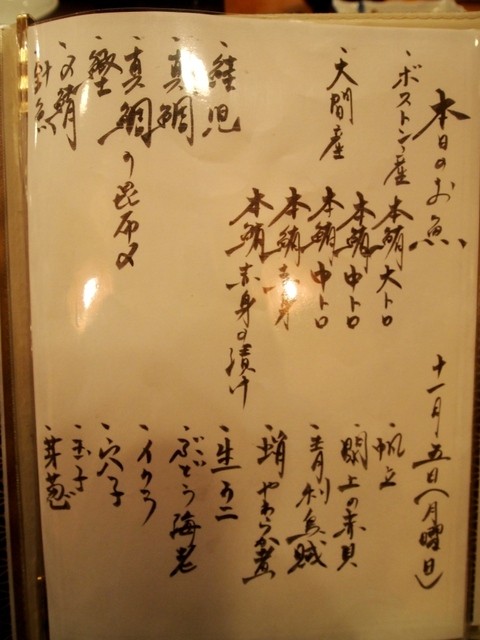 本日のお魚 十一月五日(月曜日)
、ボストン産 本鮪大トロ
本鮪中トロ
、大間産 本鮪中トロ
本鮪赤身
本鮪赤身の漬け
、鮭児
、真鯛
、真鯛の昆布〆
、鰹
、〆鯖
、針魚
、帆立
、閖上の赤貝
、青利烏賊
、蛸やわらか煮
、生ウニ
、ぶどう海老
、イクラ
、穴子
、玉子
、芽葱